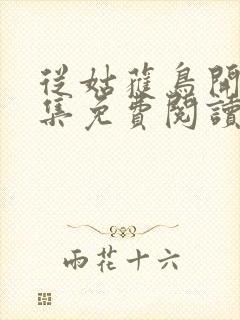 從姑蘇鳥開
集免費閱讀
雨花十六